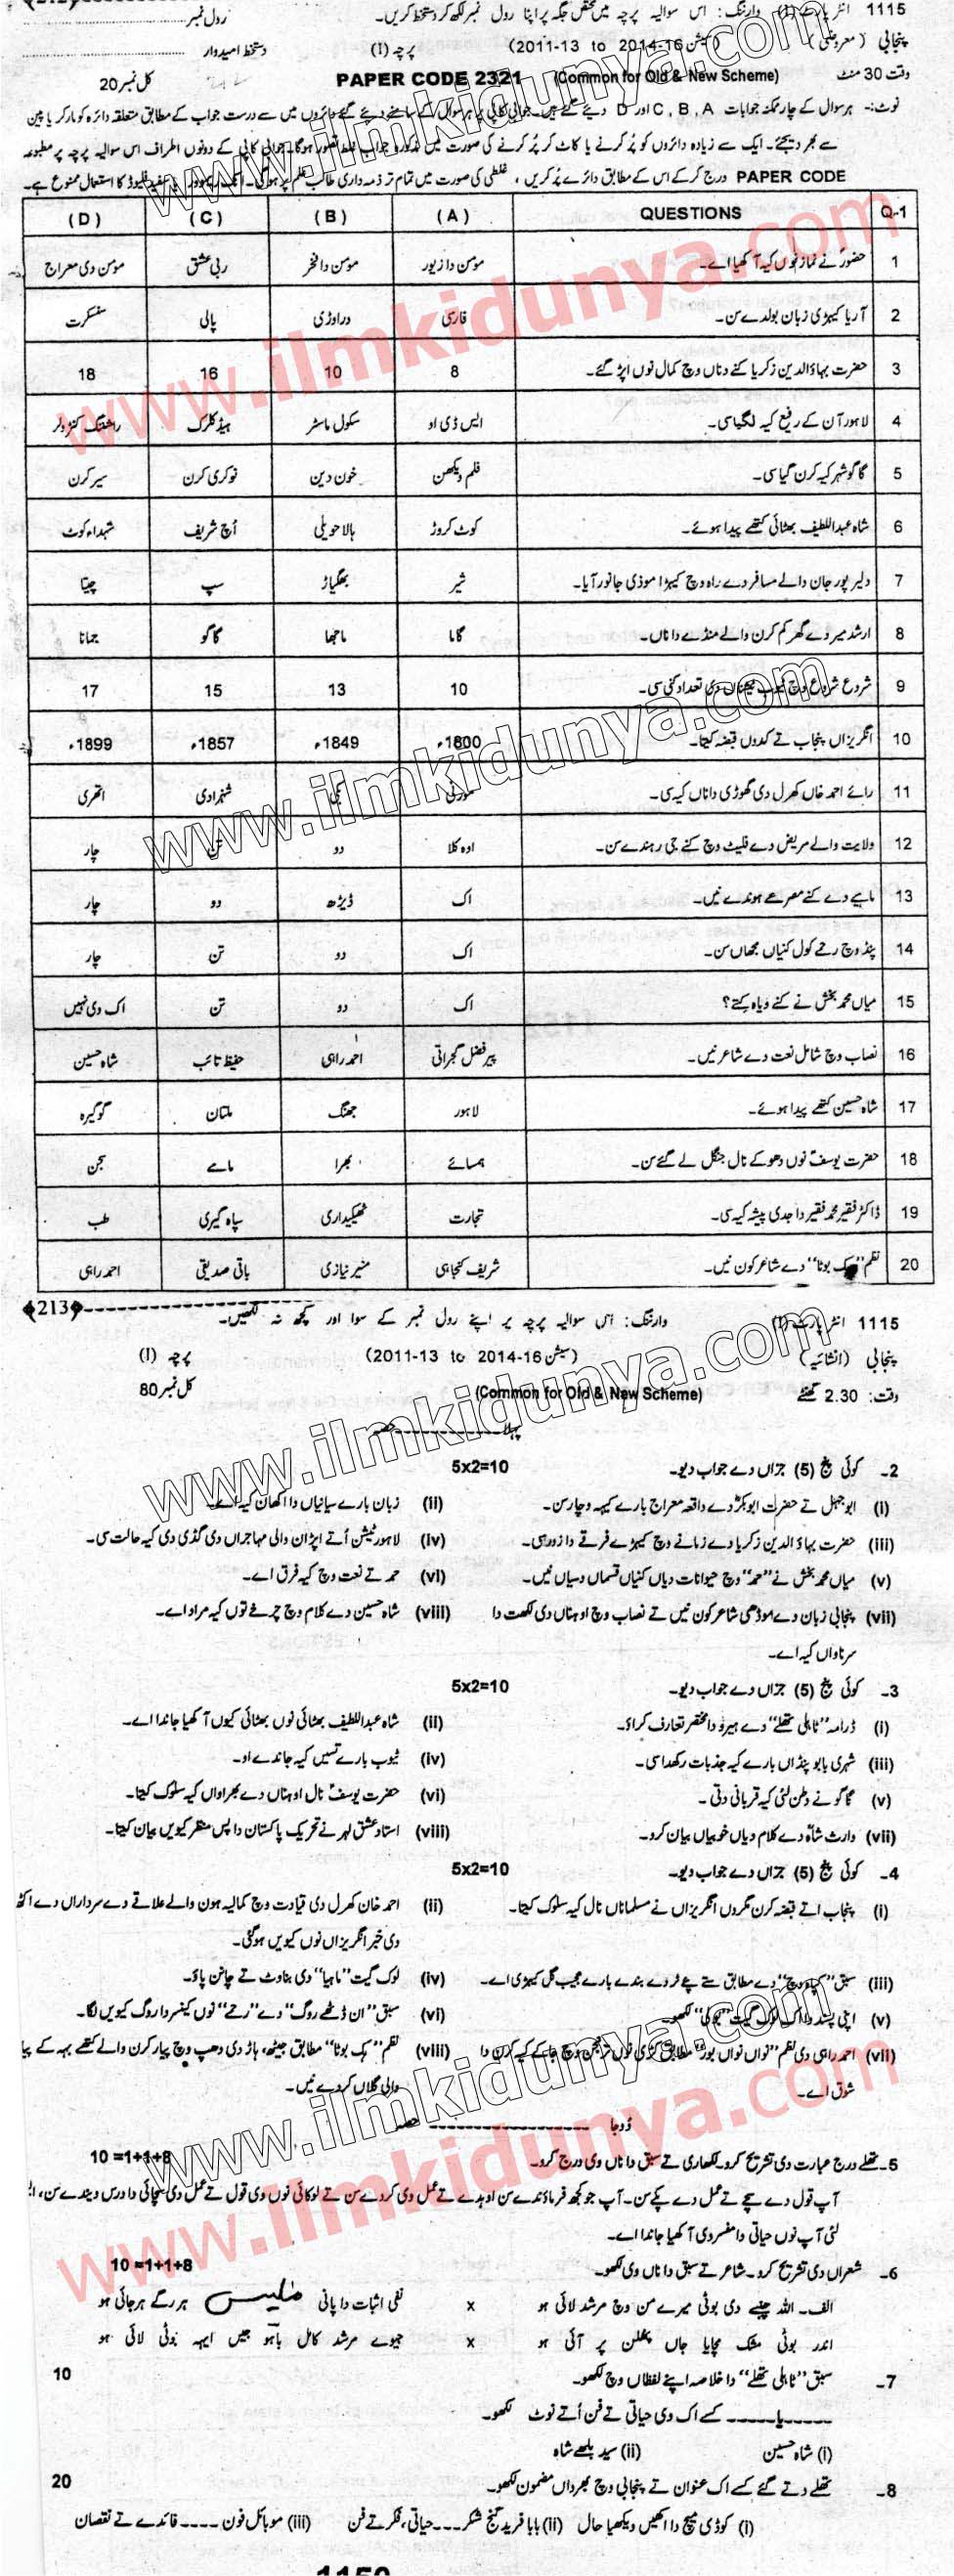 1115 انٹر پارٹ (I) وارننگ: اس سوالیہ پرچہ میں مختص جگہ پر اپنا رول نمبر لکھ کر دستخط کریں۔ رول نمبر
پنجابی (معروضی) (سیشن 2011-13 to 2014-16) پرچہ (I) دستخط امیدوار
وقت 30 منٹ (Common for Old & New Scheme) PAPER CODE 2321 کل نمبر 20
نوٹ:۔ ہر سوال کے چار ممکنہ جوابات C, B, A اور D دیئے گئے ہیں۔ جوابی کاپی پر ہر سوال کے سامنے دیئے گئے دائروں میں سے درست جواب کے مطابق متعلقہ دائرہ کو مارکر یا پین
سے بھر دیجئے۔ ایک سے زیادہ دائروں کو پُر کرنے یا کاٹ کر پُر کرنے کی صورت میں مذکورہ جواب غلط تصور ہوگا۔ جوابی کاپی کے دونوں اطراف اس سوالیہ پرچہ پر مطبوعہ
PAPER CODE درج کر کے اس کے مطابق دائرے پُر کریں، غلطی کی صورت میں تمام تر ذمہ داری طالب علم پر ہوگی۔ فلیوڈ کا استعمال ممنوع ہے۔
Q-1 QUESTIONS (A) (B) (C) (D)
1 حضورؐ نے نماز نوں کیہ آکھیا اے۔ مومن دا زیور مومن دا فخر ربی عشق مومن دی معراج
2 آریا کیہڑی زبان بولدے سن۔ فارسی دراوڑی پالی سنسکرت
3 حضرت بہاؤالدین زکریا کنے دناں وچ کمال نوں اپڑ گئے۔ 8 10 16 18
4 لاہور آن کے رفیع کیہ لگیا سی۔ ایس ڈی او سکول ماسٹر ہیڈ کلرک راشننگ کنٹرولر
5 گاگو شہر کیہ کرن گیا سی۔ فلم ویکھن خون دین نوکری کرن سیر کرن
6 شاہ عبداللطیف بھٹائی کتھے پیدا ہوئے۔ کوٹ کروڑ ہالا حویلی اُچ شریف شہداء کوٹ
7 دلیر پور جان والے مسافر دے راہ وچ کیہڑا موذی جانور آیا۔ شیر بھگیاڑ سپ چیتا
8 ارشد میر دے گھر کم کرن والے منڈے دا ناں۔ گاما ماجھا گاگو جمانا
9 شروع شروع وچ ٹیوب بیبناں دی تعداد کنی سی۔ 10 13 15 17
10 انگریزاں پنجاب تے کدوں قبضہ کیتا۔ 1800ء 1849ء 1857ء 1899ء
11 رائے احمد خاں کھرل دی گھوڑی دا ناں کیہ سی۔ مورنی کی شہزادی اتھری
12 ولایت والے مریض دے فلیٹ وچ کنے جی رہندے سن۔ اوہ کلا دو تن چار
13 ماہیے دے کنے مصرعے ہوندے نیں۔ اک ڈیڑھ دو چار
14 پنڈ وچ رحمے کول کنیاں مجھاں سن۔ اک دو تن چار
15 میاں محمد بخش نے کنے ویاہ کیتے؟ اک دو تن اک وی نہیں
16 نصاب وچ شامل نعت دے شاعر نیں۔ پیر فضل گجراتی احمد راہی حفیظ تائب شاہ حسین
17 شاہ حسین کتھے پیدا ہوئے۔ لاہور جھنگ ملتان گوگیرہ
18 حضرت یوسفؑ نوں دھوکے نال جنگل لے گئے سن۔ ہمسائے بھرا مامے سجن
19 ڈاکٹر فقیر محمد فقیر دا جدی پیشہ کیہ سی۔ تجارت ٹھیکیداری سپاہ گیری طب
20 نظم "ہک بوٹا" دے شاعر کون نیں۔ شریف کنجاہی منیر نیازی باقی صدیقی احمد راہی
213
1115 انٹر پارٹ (I) وارننگ: اس سوالیہ پرچہ پر اپنے رول نمبر کے سوا اور کچھ نہ لکھیں۔
پنجابی (انشائیہ) (سیشن 2011-13 to 2014-16) پرچہ (I)
وقت: 2.30 گھنٹے (Common for Old & New Scheme) کل نمبر 80
پہلا حصہ
2۔ کوئی پنج (5) جزاں دے جواب دیو۔ 5x2=10
(i) ابوجہل تے حضرت ابوبکرؓ دے واقعہ معراج بارے کیہہ وچار سن۔ (ii) زبان بارے سیانیاں دا اکھان کیہ اے۔
(iii) حضرت بہاؤالدین زکریا دے زمانے وچ کیہڑے فرقے دا زور سی۔ (iv) لاہور سٹیشن اُتے اپڑن والی مہاجراں دی گڈی دی کیہ حالت سی۔
(v) میاں محمد بخش نے "حمد" وچ حیوانات دیاں کنیاں قسماں دسیاں نیں۔ (vi) حمد تے نعت وچ کیہ فرق اے۔
(vii) پنجابی زبان دے موڈھی شاعر کون نیں تے نصاب وچ اوہناں دی لکھت دا (viii) شاہ حسین دے کلام وچ چرخے توں کیہ مراد اے۔
سرناواں کیہ اے۔
3۔ کوئی پنج (5) جزاں دے جواب دیو۔ 5x2=10
(i) ڈرامہ "ٹاہلی تھلے" دے ہیرو دا مختصر تعارف کراؤ۔ (ii) شاہ عبداللطیف بھٹائی نوں بھٹائی کیوں آکھیا جاندا اے۔
(iii) شہری بابو پنڈاں بارے کیہ جذبات رکھدا سی۔ (iv) ٹیوب بارے تسیں کیہ جاندے او۔
(v) گاگو نے وطن لئی کیہ قربانی دتی۔ (vi) حضرت یوسفؑ نال اوہناں دے بھراواں کیہ سلوک کیتا۔
(vii) وارث شاہؒ دے کلام دیاں خوبیاں بیان کرو۔ (viii) استاد عشق لہر نے تحریک پاکستان دا پس منظر کیویں بیان کیتا۔
4۔ کوئی پنج (5) جزاں دے جواب دیو۔ 5x2=10
(i) پنجاب اتے قبضہ کرن مگروں انگریزاں نے مسلماناں نال کیہ سلوک کیتا۔ (ii) احمد خان کھرل دی قیادت وچ کمالیہ ہون والے علاقے دے سرداراں دے اکٹھ
دی خبر انگریزاں نوں کیویں ہوگئی۔
(iii) سبق دے مطابق ستے پئے ٹردے بندے بارے عجیب گل کیہڑی اے۔ (iv) لوک گیت "ماہیا" دی بناوٹ تے چانن پاؤ۔
(v) اپنی پسند دا اک لوک گیت لکھو۔ (vi) سبق "ان ڈٹھے روگ" دے "رحمے" نوں کینسر دا روگ کیویں لگا۔
(vii) احمد راہی دی نظم "نواں نواں بور" مطابق کڑی نوں ترنجن وچ جا کے کیہ کرن دا (viii) نظم "ہک بوٹا" مطابق جیٹھ، ہاڑ دی دھپ وچ پیار کرن والے کتھے بہہ کے پیار
شوق اے۔ والی گلاں کردے نیں۔
دُوجا حصہ
5۔ تھلے درج عبارت دی تشریح کرو۔ لکھاری تے سبق دا ناں وی درج کرو۔ 10 =1+1+8
آپ قول دے سچے تے عمل دے پکے سن۔ آپ جو کجھ فرماؤندے سن اوہدے تے عمل وی کردے سن تے لوکائی نوں وی قول تے عمل دی سچائی دا درس دیندے سن،
لئی آپ نوں حیاتی دا مفسر وی آکھیا جاندا اے۔
6۔ شعراں دی تشریح کرو۔ شاعر تے سبق دا ناں وی لکھو۔ 10 =1+1+8
الف۔ اللہ چنبے دی بوٹی میرے من وچ مرشد لائی ہو x نفی اثبات دا پانی ملیس ہر رگے ہر جائی ہو
اندر بوٹی مشک مچایا جاں پھلن پر آئی ہو x جیوے مرشد کامل باہو جیں ایہہ بوٹی لائی ہو
7۔ سبق "ٹاہلی تھلے" دا خلاصہ اپنے لفظاں وچ لکھو۔ 10
-----یا----- کسے اک دی حیاتی تے فن اُتے نوٹ لکھو۔
(i) شاہ حسین (ii) سید بلھے شاہ
8۔ تھلے دتے گئے کسے اک عنوان تے پنجابی وچ بھرواں مضمون لکھو۔ 20
(i) کوڈی میچ دا اکھیں ویکھیا حال (ii) بابا فرید گنج شکر---حیاتی، فکر تے فن (iii) موبائل فون ---- فائدے تے نقصان
www.ilmkidunya.com
www.ilmkidunya.com
www.ilmkidunya.com
www.ilmkidunya.com
www.ilmkidunya.com
www.ilmkidunya.com